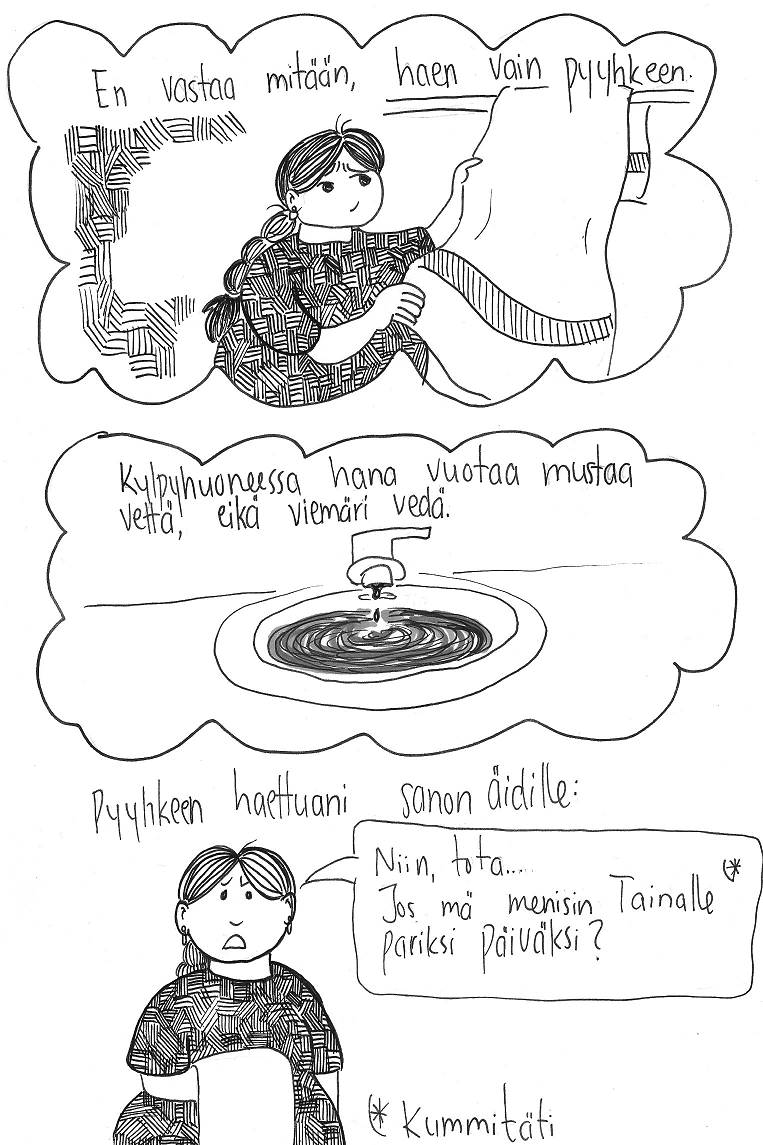 En vastaa mitään, haen vain pyyhkeen.
Kylpyhuoneessa hana vuotaa mustaa
vettä, eikä viemäri vedä.
Pyyhkeen haettuani sanon äidille:
Niin, tota.... (*
Jos mä menisin Tainalle
pariksi päiväksi?
(* Kummitäti